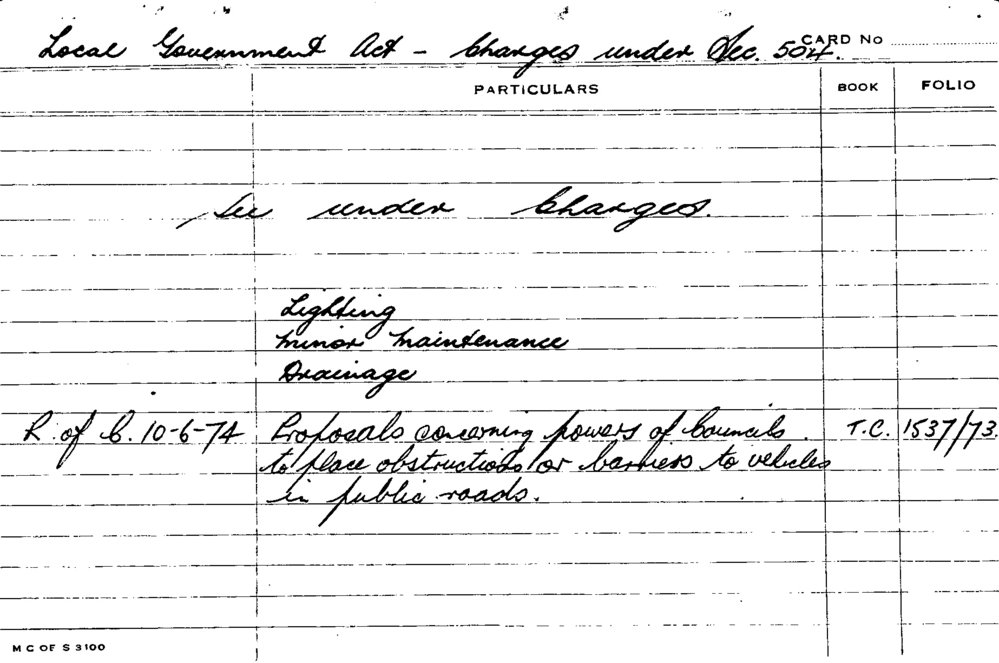 Local Government Act - Charges under Sec. 504.
CARD No
PARTICULARS BOOK FOLIO
See under Charges.
Lighting
Minor Maintenance
Drainage
R. of C. 10-6-74 Proposals concerning powers of Councils T.C. 1537/73.
to place obstructions or barriers to vehicles
in public roads.
M C OF S 3100